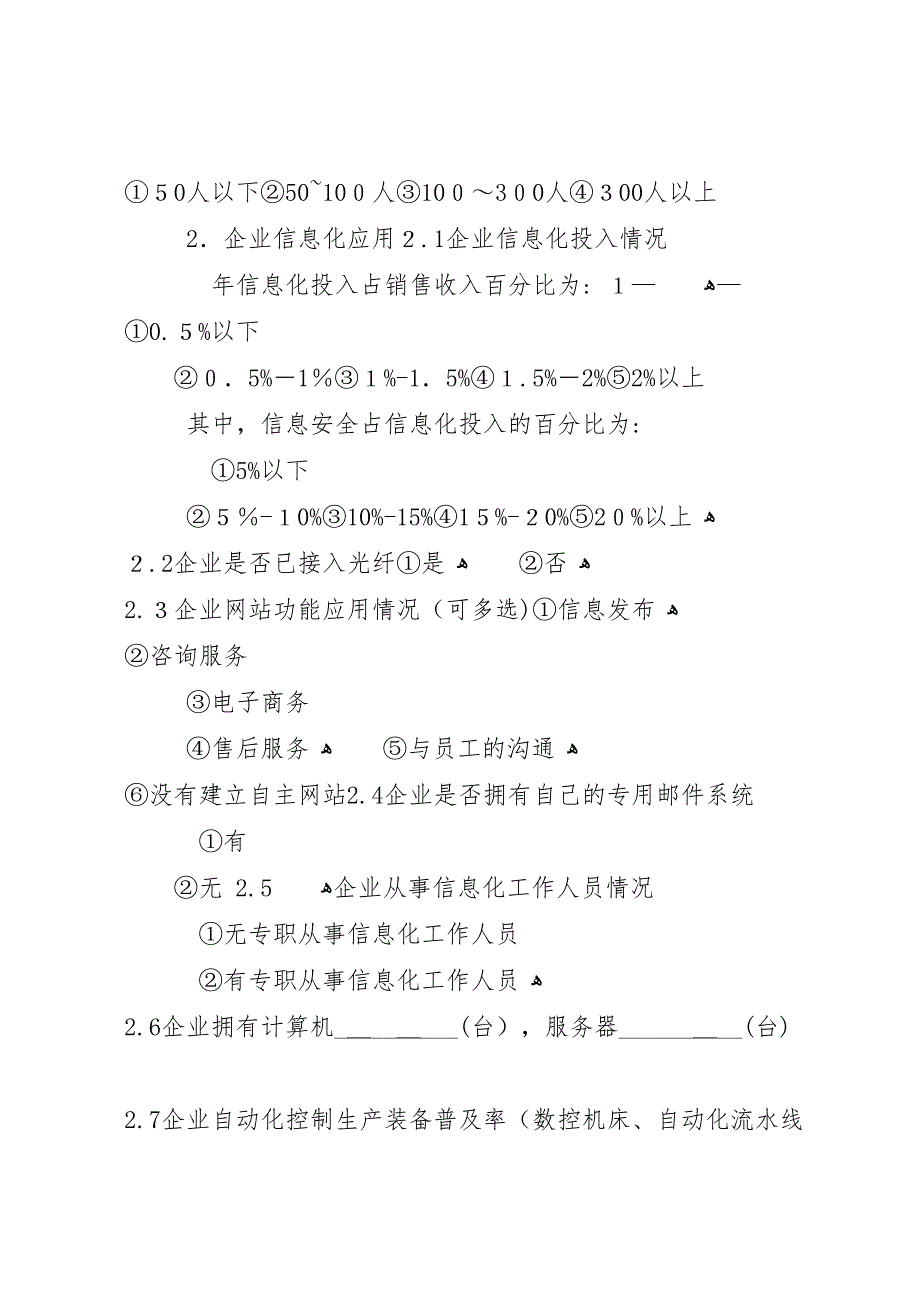 ①５0人以下②50~10０人③10０～3００人④３00人以上
2．企业信息化应用２.1企业信息化投入情况
年信息化投入占销售收入百分比为: １— ﻫ—
①0.５%以下
②０．5%－1％③１%-1．5%④１.5%－2%⑤2%以上
其中，信息安全占信息化投入的百分比为:
①5%以下
②５％-１0%③10%-15%④1５%-２0%⑤2０%以上ﻫ
２.2企业是否已接入光纤①是ﻫ ②否ﻫ
2.３企业网站功能应用情况（可多选)①信息发布ﻫ
②咨询服务
③电子商务
④售后服务ﻫ ⑤与员工的沟通ﻫ
⑥没有建立自主网站2.4企业是否拥有自己的专用邮件系统
①有
②无 2.5 ﻫ企业从事信息化工作人员情况
①无专职从事信息化工作人员
②有专职从事信息化工作人员ﻫ
2.6企业拥有计算机__________(台），服务器__________(台)
2.7企业自动化控制生产装备普及率（数控机床、自动化流水线